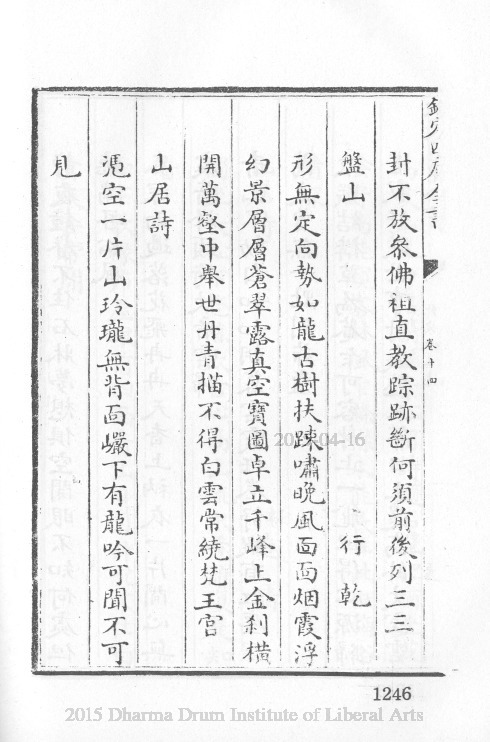 欽定四庫全書
卷十四
封不放叅佛祖直教踪跡斷何須前後列三三
盤山 行乾
形無定向勢如龍古樹扶踈嘯晚風面面烟霞浮
幻景層層蒼翠露真空寶圖卓立千峰上金刹橫
開萬壑中舉世丹青描不得白雲常繞梵王宮
山居詩
憑空一片山玲瓏無背面巗下有龍吟可聞不可
見
2015-04-16
1246
2015 Dharma Drum Institute of Liberal Arts